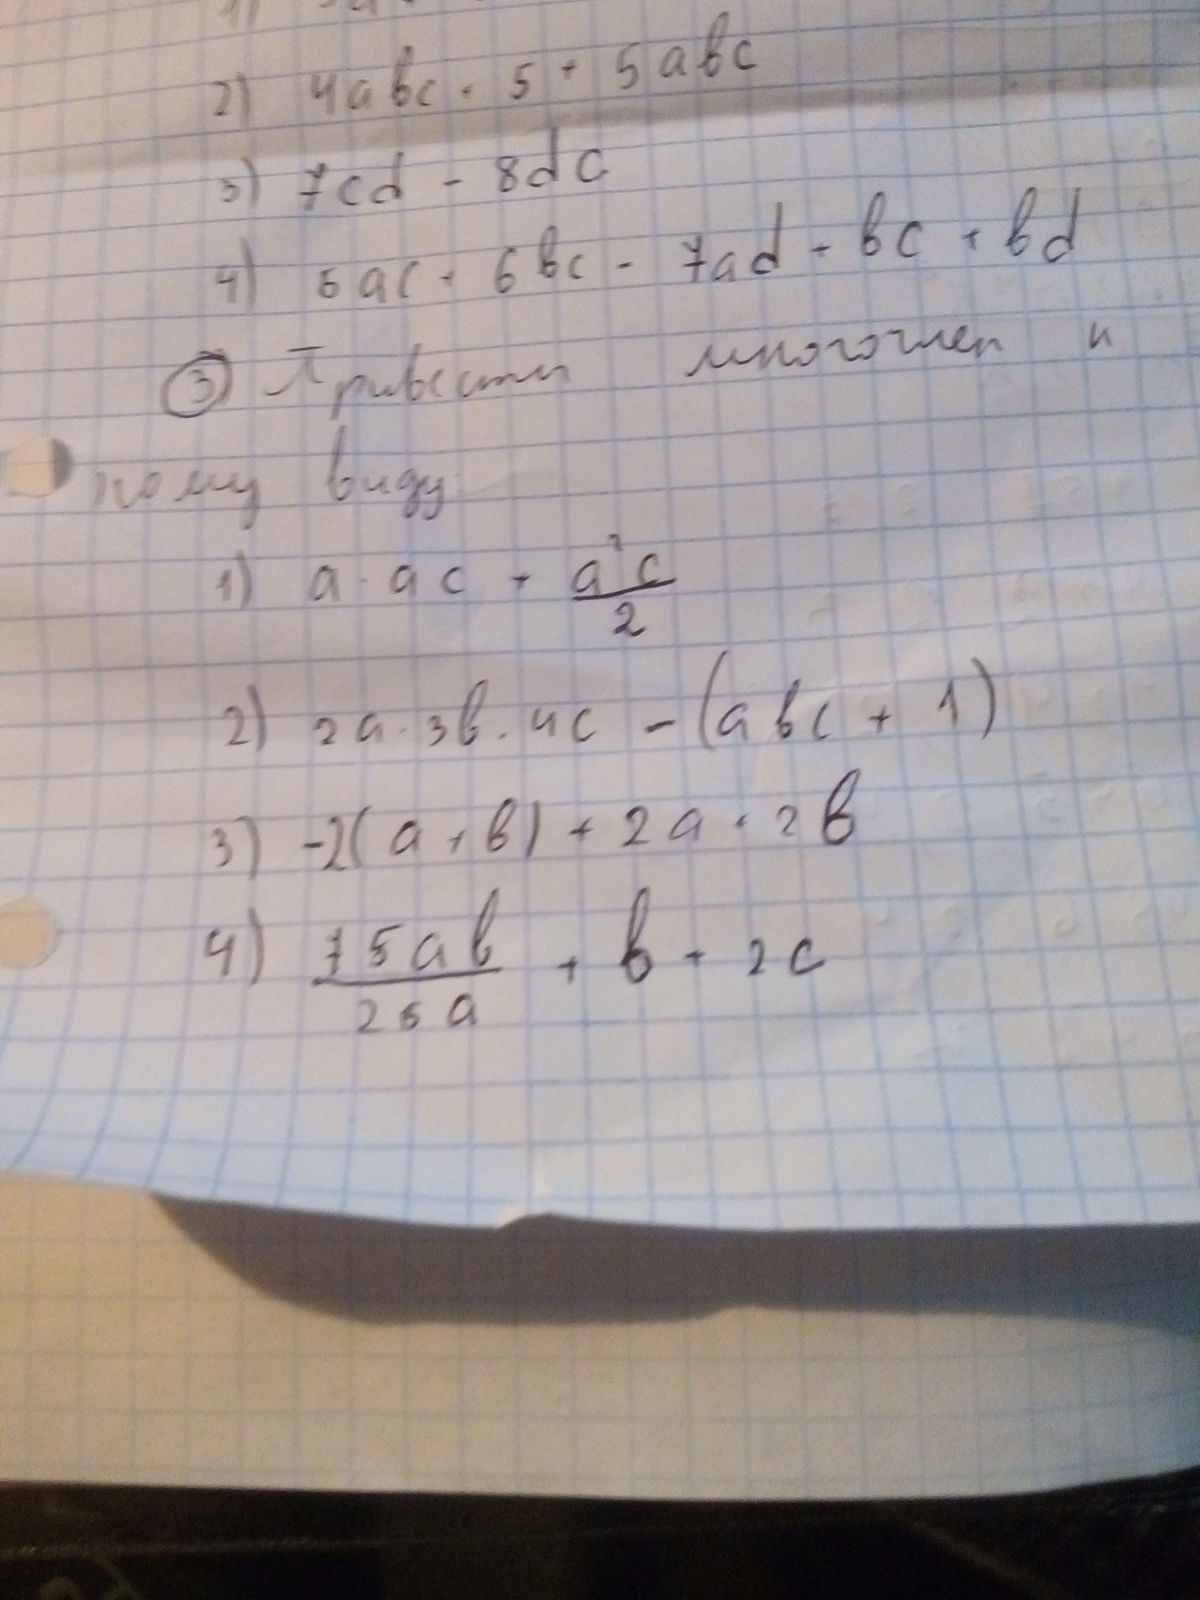 2) 4abc · 5 + 5abc
3) 7cd - 8dc
4) 5ac + 6bc - 7ad + bc + bd
③ Привести многочлен к
ному виду
1) a · ac + a²c/2
2) 2a · 3b · 4c - (abc + 1)
3) -2(a + b) + 2a · 2b
4) 75ab/25a + b + 2c